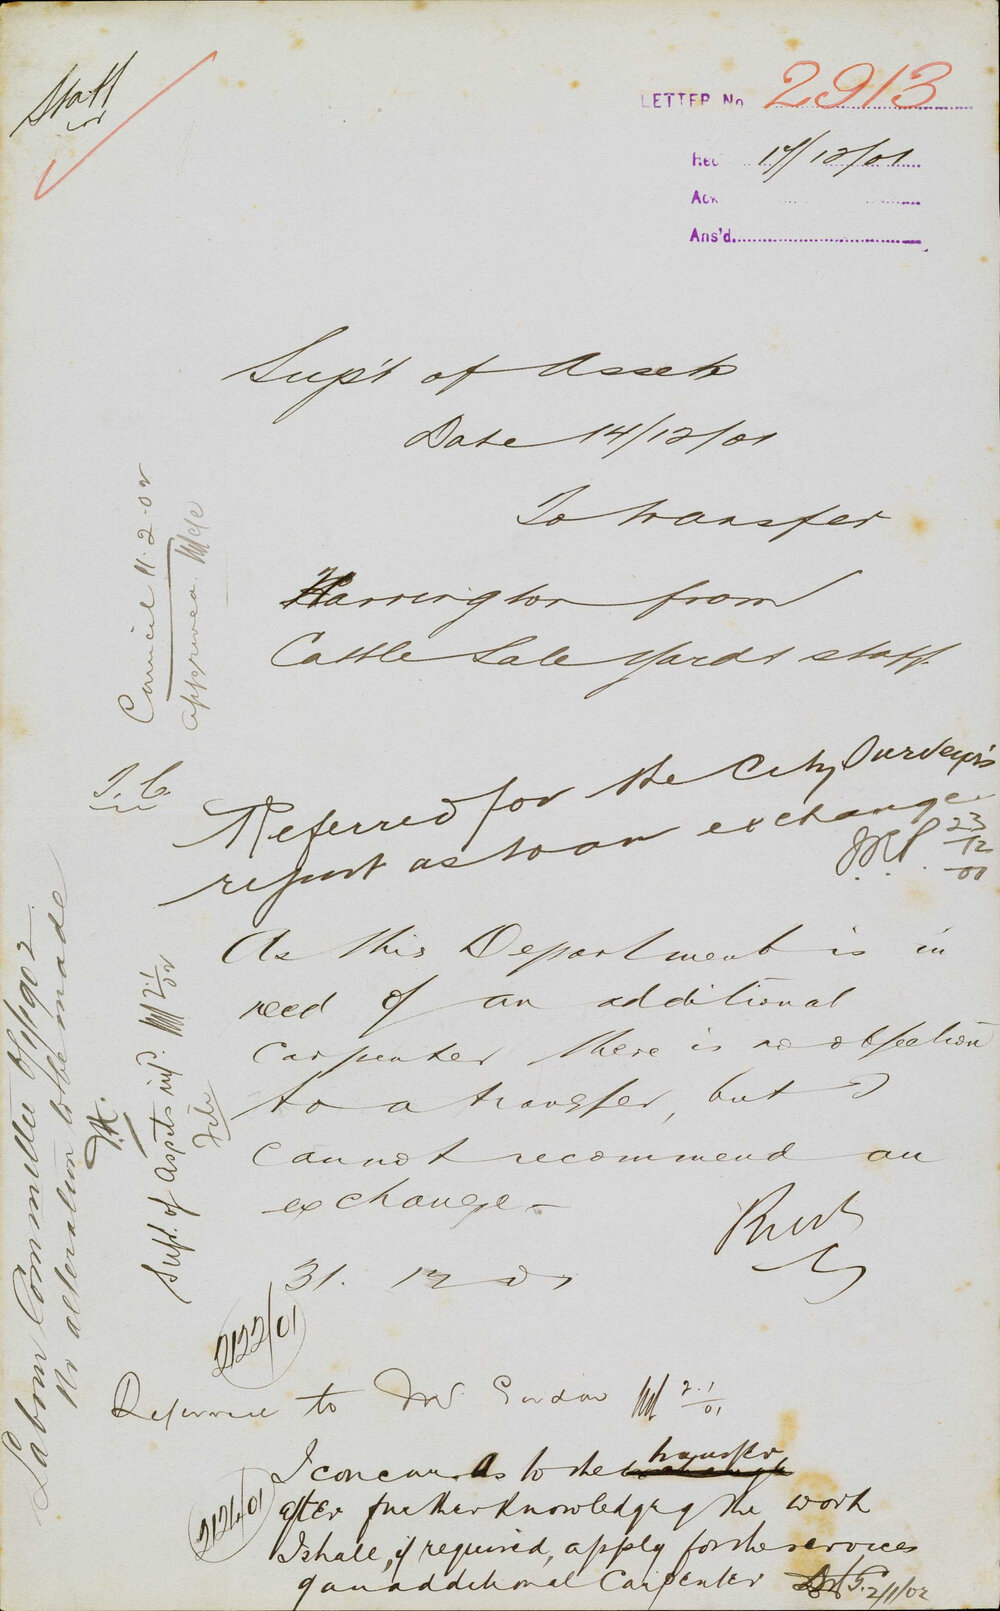 Staff
LETTER No 2913
Rec 17/12/01
Ack
Ans'd
Supt of Assets
Date 14/12/01
To transfer
Harrington from
Cattle Sale Yards staff.
Referred for the City Surveyor's
report as to an exchange.
23
12
01
As this Department is in
need of an additional
carpenter there is no objection
to a transfer, but I
cannot recommend an
exchange -
31. 12 01
2122/01
Referred to Mr. Gordon
2.1
01
I concur. As to the transfer
after further knowledge of the work
I shall, if required, apply for the services
of an additional Carpenter
2/1/02
2124/01
Council 11.2.02
approved
T. C.
Labour Committee
No alteration to be made
Supt. of Assets inf.
File